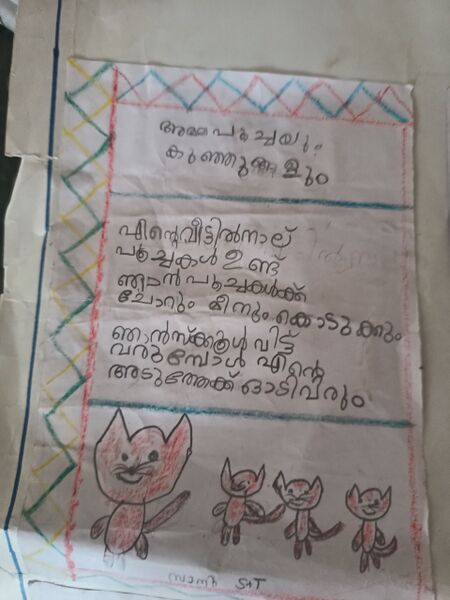 അമ്മപൂച്ചയും
കുഞ്ഞുങ്ങളും
എന്റെവീട്ടിൽനാല്
പൂച്ചകൾ ഉണ്ട്
ഞാൻ പൂച്ചകൾക്ക്
ചോറും മീനും കൊടുക്കും
ഞാൻസ്ക്കൂൾ വിട്ട്
വരുമ്പോൾ എന്റെ
അടുത്തേക്ക് ഓടിവരും